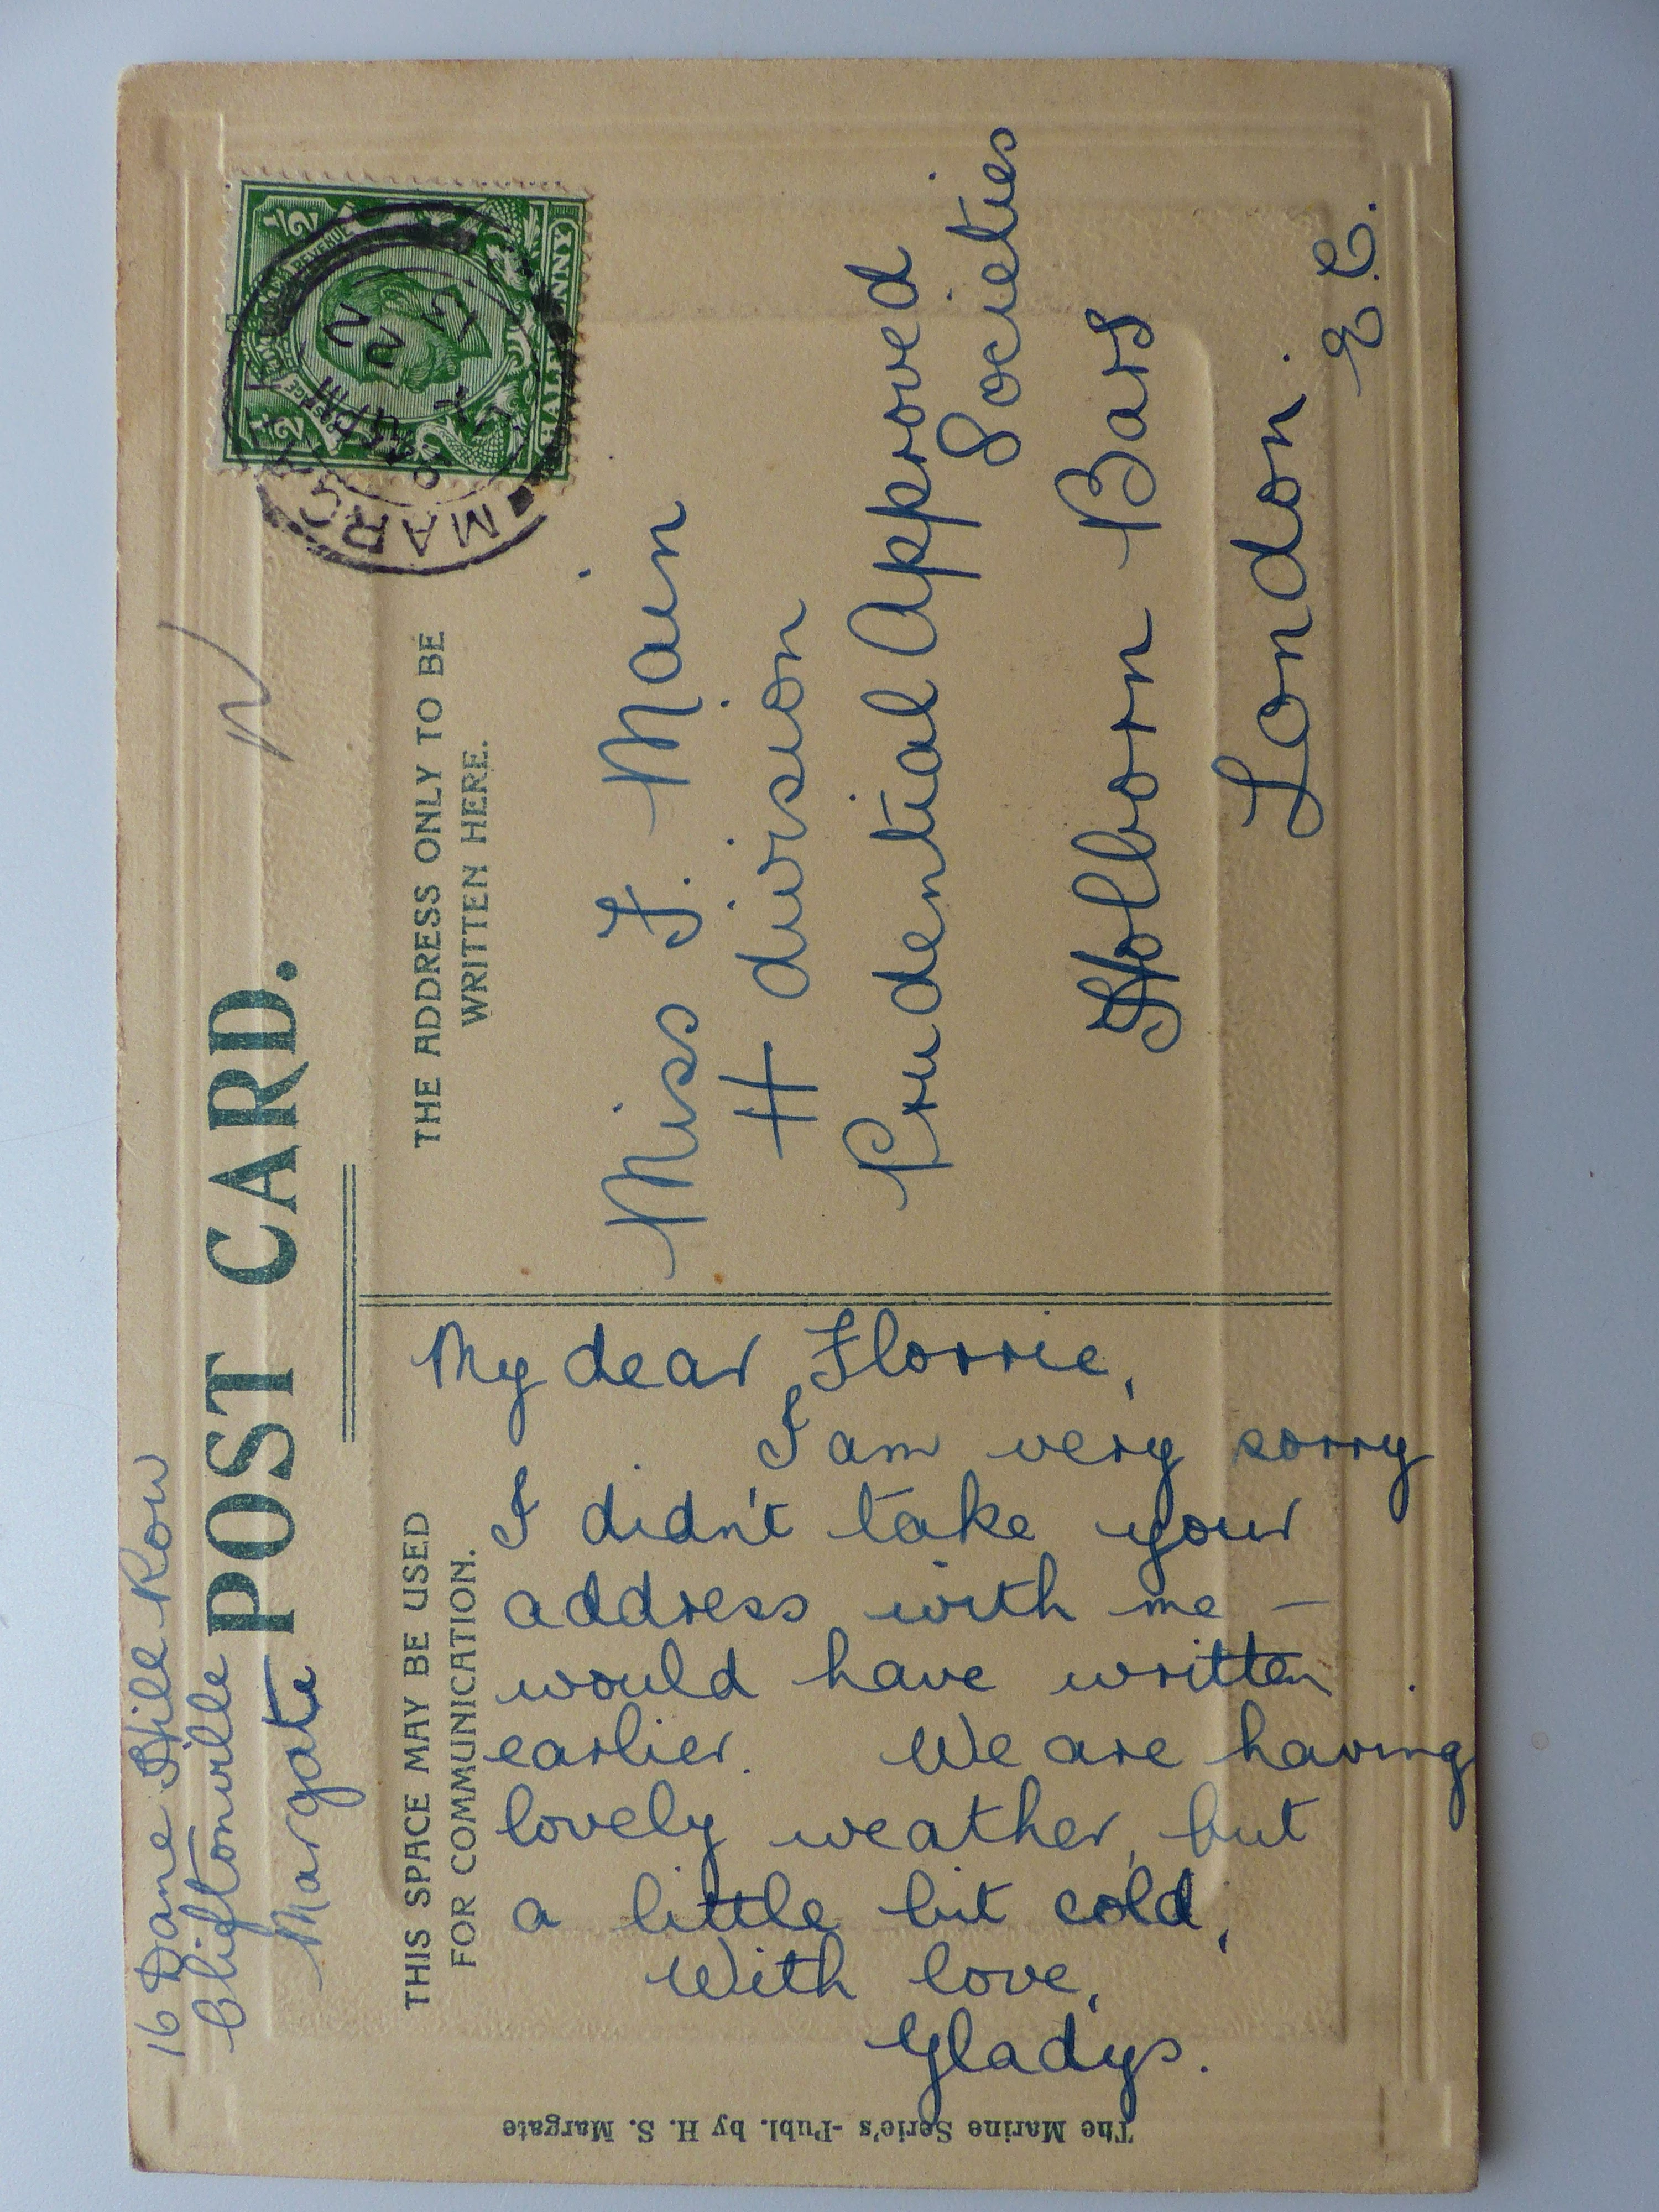 16 Dane Hill Row
Cliftonville
Margate
POST CARD.
THIS SPACE MAY BE USED
FOR COMMUNICATION.
My dear Florrie,
I am very sorry
I didn't take your
address with me —
would have written
earlier. We are having
lovely weather, but
a little bit cold,
With love,
Gladys.
The Marine Serie's -Publ. by H. S. Margate
THE ADDRESS ONLY TO BE
WRITTEN HERE.
Miss F. Main
H division
Prudential Approved
Societies
Holborn Bars
London.
E.C.
POSTAGE REVENUE
1/2 1/2
HALFPENNY
MARGATE
22
13